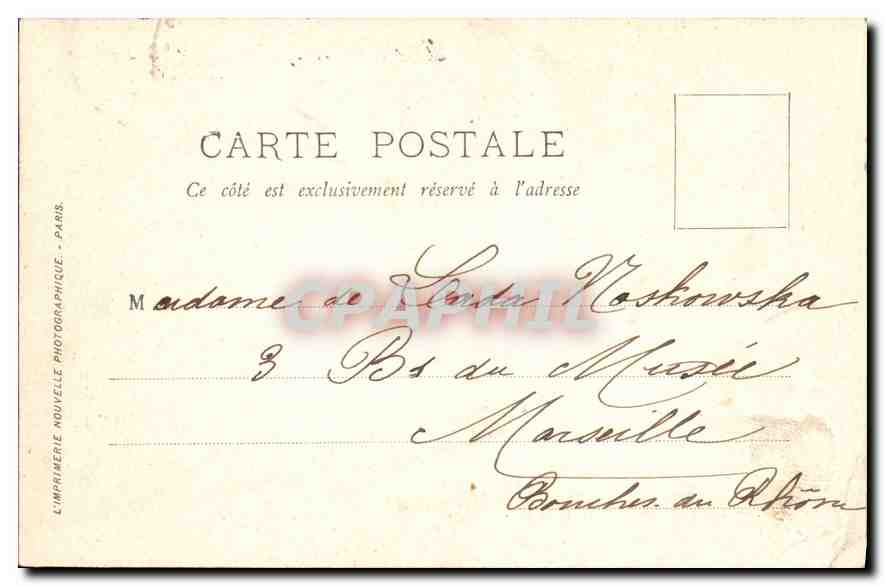 CARTE POSTALE
Ce côté est exclusivement réservé à l'adresse
Madame de Moskowska
3 Bd du Musée
Marseille
Bouches du Rhône
L'IMPRIMERIE NOUVELLE PHOTOGRAPHIQUE. - PARIS.
CPAPHIL